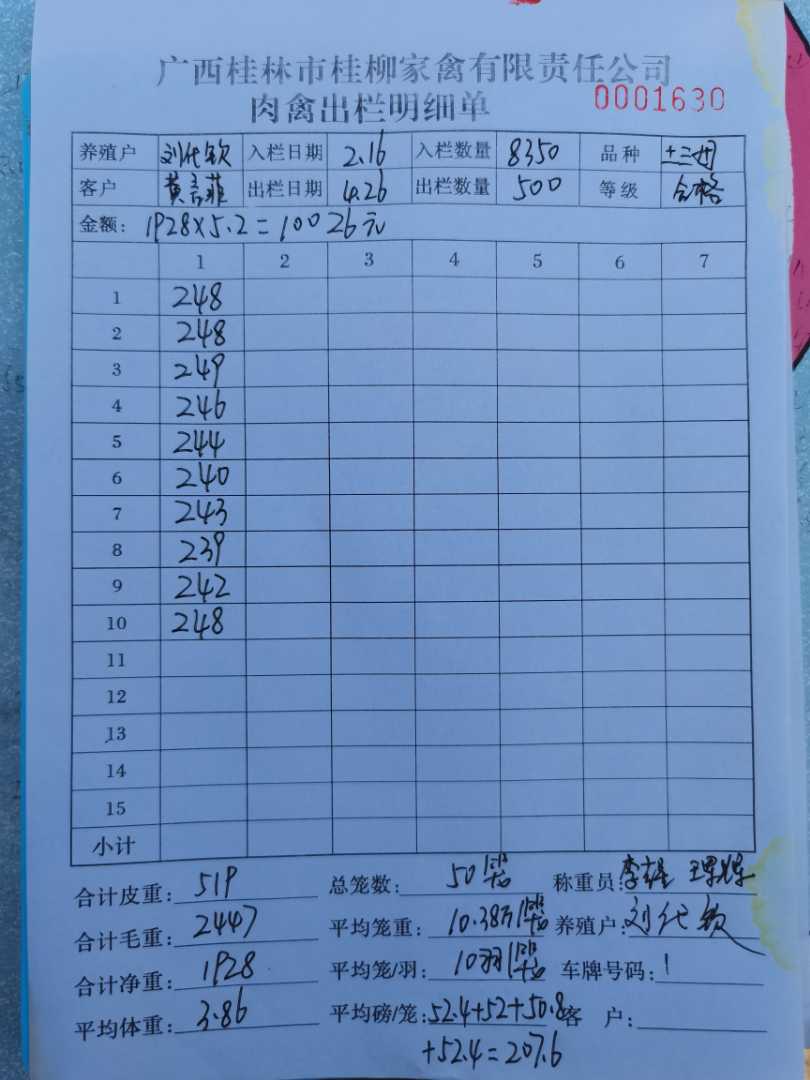 广西桂林市桂柳家禽有限责任公司
肉禽出栏明细单 0001630
养殖户 刘代钦 入栏日期 2.16 入栏数量 8350 品种
客户 出栏日期 4.26 出栏数量 500 等级 合格
金额: 1928×5.2=10026元
1 2 3 4 5 6 7
1 248
2 248
3 249
4 246
5 244
6 240
7 243
8 239
9 242
10 248
11
12
13
14
15
小计
合计皮重: 519 总笼数: 50 称重员:
合计毛重: 2447 平均笼重: 10.38 养殖户: 刘代钦
合计净重: 1928 平均笼/羽: 10羽 车牌号码:
平均体重: 3.86 平均磅/笼: 52.4+52+50.8 客 户:
+52.4=207.6